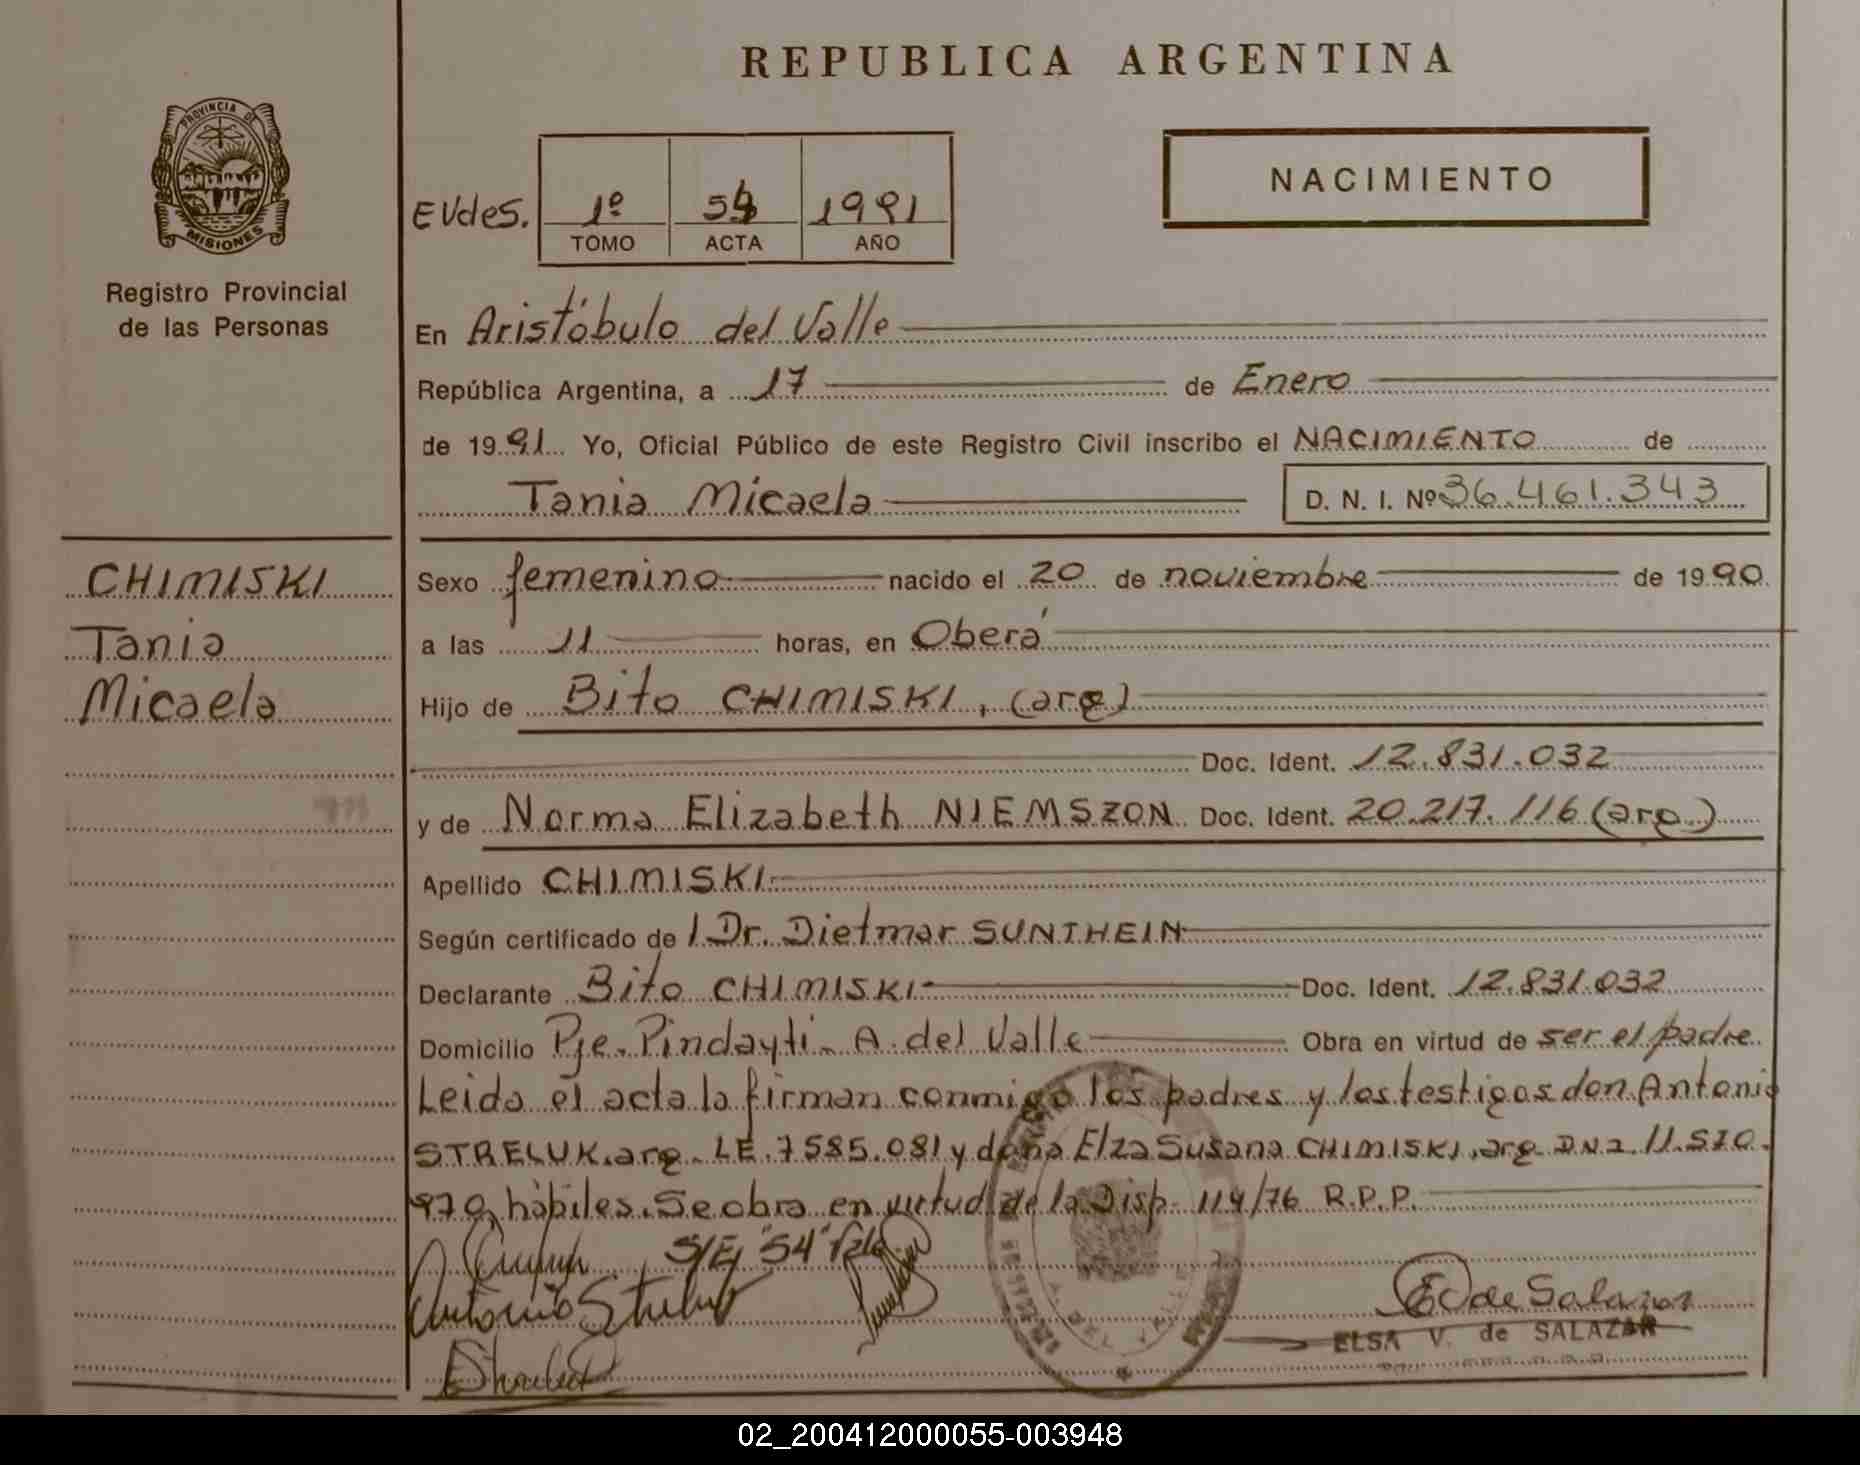 REPUBLICA ARGENTINA
PROVINCIA DE
MISIONES
Registro Provincial
de las Personas
EVdes.
1º 54 1991
TOMO ACTA AÑO
NACIMIENTO
En Aristóbulo del Valle
República Argentina, a 17 de Enero
de 1991 Yo, Oficial Público de este Registro Civil inscribo el NACIMIENTO de
Tania Micaela D. N. I. Nº 36.461.343
CHIMISKI
Tania
Micaela
Sexo femenino nacido el 20 de noviembre de 1990
a las 11 horas, en Oberá
Hijo de Bito CHIMISKI, (arg)
Doc. Ident. 12.831.032
y de Norma Elizabeth NIEMSZON Doc. Ident. 20.217.116 (arg.)
Apellido CHIMISKI
Según certificado de l Dr. Dietmar SUNTHEIN
Declarante Bito CHIMISKI Doc. Ident. 12.831.032
Domicilio Pje. Pindayti - A. del Valle Obra en virtud de ser el padre
Leida el acta la firman conmigo los padres y los testigos don Antonio
STRELUK, arg. LE. 7585.081 y doña Elza Susana CHIMISKI, arg. DNI. 11.570.
970, hábiles. Se obra en virtud de la Disp. 114/76 R.P.P.
S/E/ "54" Vale
Antonio Streluk
E de Salazar
ELSA V. de SALAZAR
02_200412000055-003948